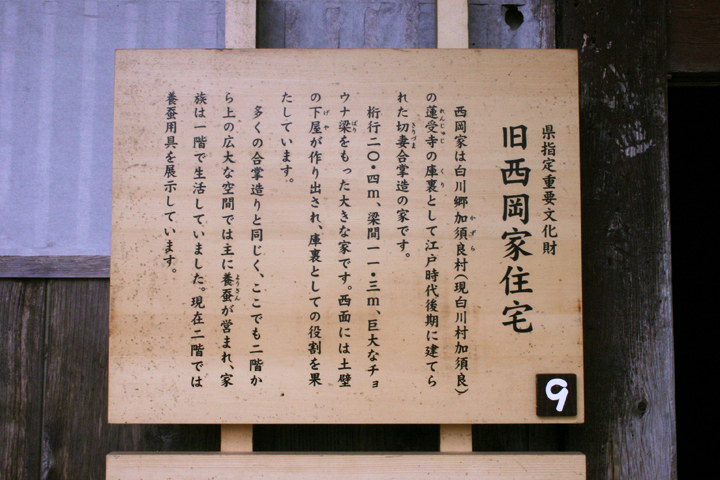 県指定重要文化財
旧西岡家住宅
西岡家は白川郷加須良村(現白川村加須良)
の蓮受寺の庫裏として江戸時代後期に建てら
れた切妻合掌造の家です。
桁行二〇・四m、梁間一一・三m、巨大なチョ
ウナ梁をもった大きな家です。西面には土壁
の下屋が作り出され、庫裏としての役割を果
たしています。
多くの合掌造りと同じく、ここでも二階か
ら上の広大な空間では主に養蚕が営まれ、家
族は一階で生活していました。現在二階では
養蚕用具を展示しています。
9